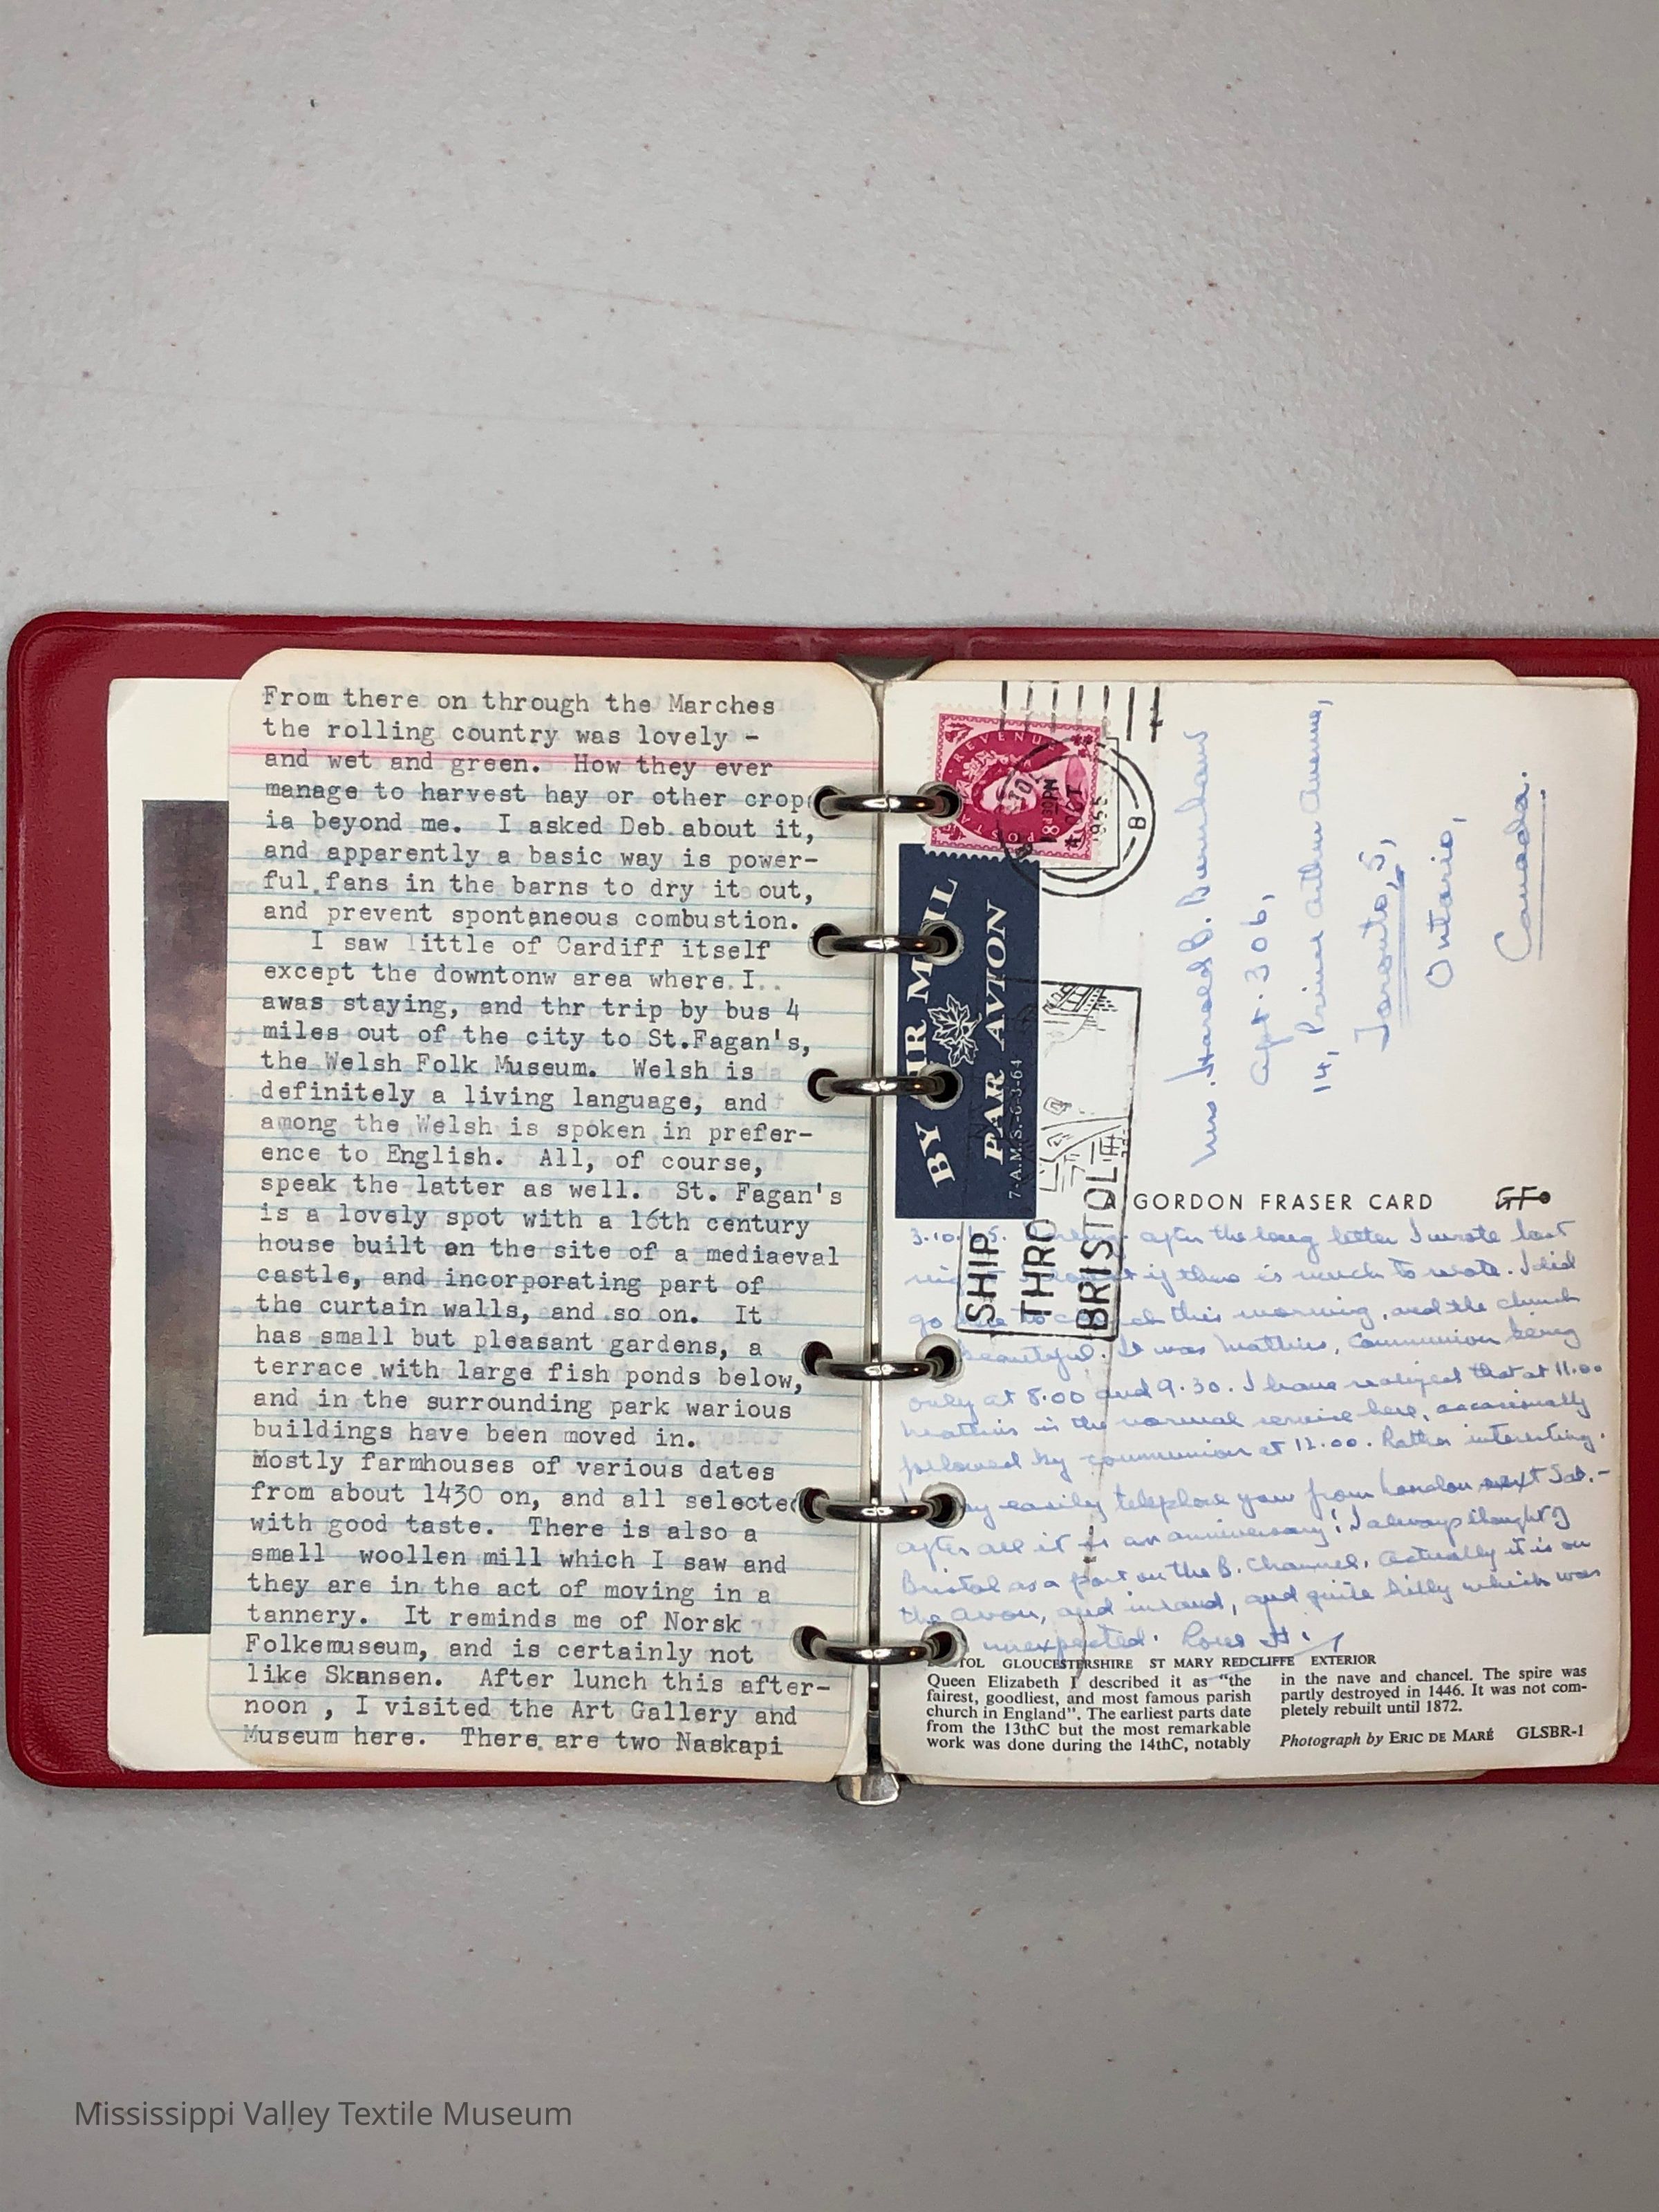 From there on through the Marches
the rolling country was lovely -
and wet and green.  How they ever
manage to harvest hay or other crop
ia beyond me.  I asked Deb about it,
and apparently a basic way is power-
ful fans in the barns to dry it out,
and prevent spontaneous combustion.
I saw little of Cardiff itself
except the downtonw area where I
awas staying, and thr trip by bus 4
miles out of the city to St.Fagan's,
the Welsh Folk Museum.  Welsh is
definitely a living language, and
among the Welsh is spoken in prefer-
ence to English.  All, of course,
speak the latter as well.  St. Fagan's
is a lovely spot with a 16th century
house built on the site of a mediaeval
castle, and incorporating part of
the curtain walls, and so on.  It
has small but pleasant gardens, a
terrace with large fish ponds below,
and in the surrounding park warious
buildings have been moved in.
Mostly farmhouses of various dates
from about 1430 on, and all selected
with good taste.  There is also a
small  woollen mill which I saw and
they are in the act of moving in a
tannery.  It reminds me of Norsk
Folkemuseum, and is certainly not
like Skansen.  After lunch this after-
noon , I visited the Art Gallery and
Museum here.  There are two Naskapi
POSTAGE REVENUE
8 30PM
OCT
B
BY AIR MAIL
PAR AVION
7-A.M.S.-6-3-64
SHIP
THRO
BRISTOL
Mrs. Harold B. Burnham
Apt. 306,
14, Prince Arthur Avenue,
Toronto, 5,
Ontario,
Canada.
A GORDON FRASER CARD
GF
3.10. after the long letter I wrote last
if there is much to write. I did
go this morning, and the church
beautiful. It was Mattins, Communion being
only at 8.00 and 9.30. I have realized that at 11.00
Mattins is the normal service here, occasionally
followed by communion at 12.00. Rather interesting.
easily telephone you from London next Sat. -
after all it is an anniversary! I always thought of
Bristol as a port on the B. Channel. Actually it is on
the Avon, and inland, and quite hilly which was
unexpected. Love H.
TOL GLOUCESTERSHIRE ST MARY REDCLIFFE EXTERIOR
Queen Elizabeth I described it as "the
fairest, goodliest, and most famous parish
church in England". The earliest parts date
from the 13thC but the most remarkable
work was done during the 14thC, notably
in the nave and chancel. The spire was
partly destroyed in 1446. It was not com-
pletely rebuilt until 1872.
Photograph by ERIC DE MARÉ GLSBR-1
Mississippi Valley Textile Museum